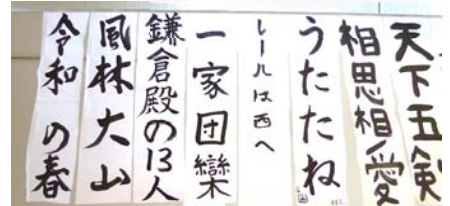 天下五剣
相思相愛
うたたね
レールは西へ
一家団欒
鎌倉殿の13人
風林大山
令和の春